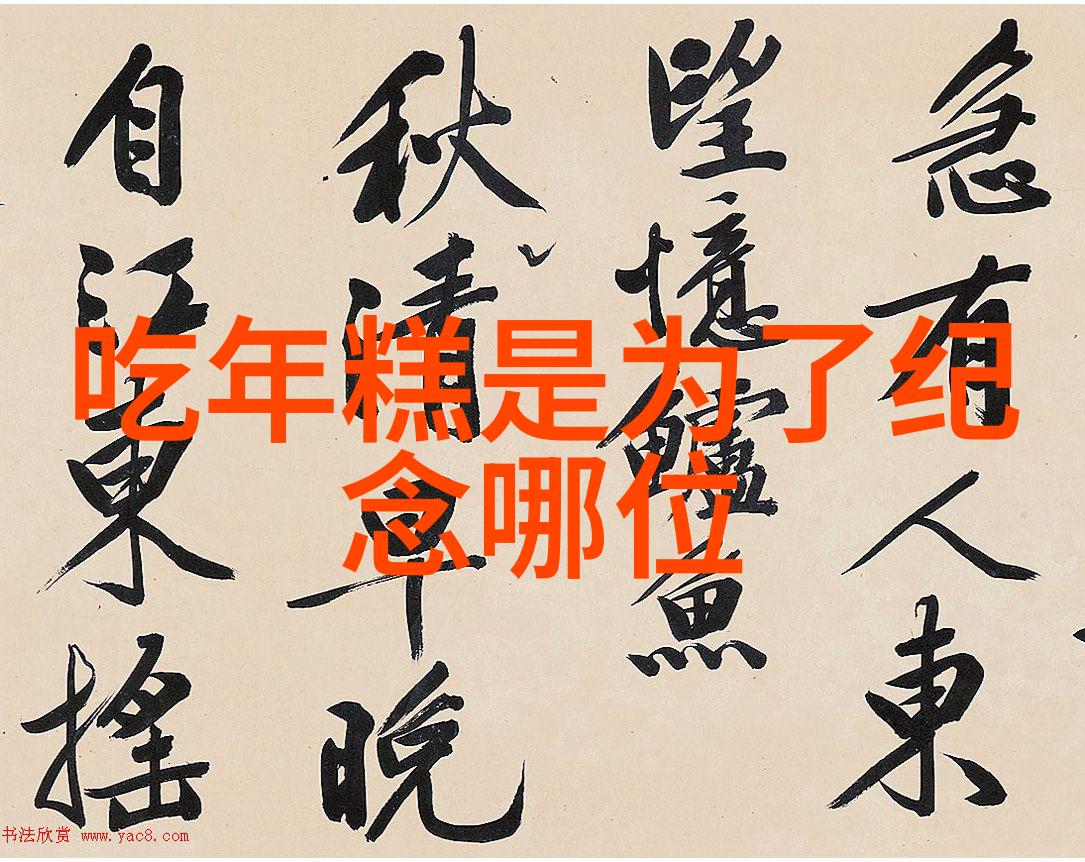 急有人東
望憶鱸魚
秋清早晚
自江東搖
吃年糕是为了纪
念哪位
书法欣赏 www.yac8.com